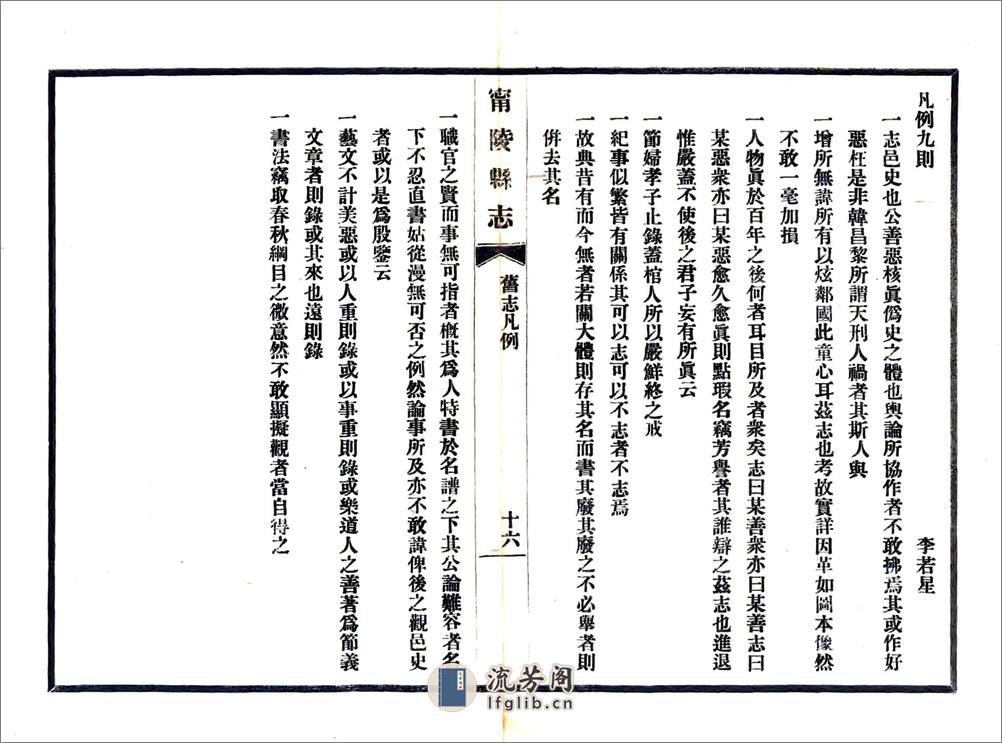 凡例九則
李若星
一志邑史也公善惡核眞僞史之體也輿論所協作者不敢拂焉其或作好
惡枉是非韓昌黎所謂天刑人禍者其斯人與
一增所無諱所有以炫鄰國此童心耳茲志也考故實詳因革如圖本像然
不敢一毫加損
一人物眞於百年之後何者耳目所及者衆矣志曰某善衆亦曰某善志曰
某惡衆亦曰某惡愈久愈眞則點瑕名竊芳譽者其誰辯之茲志也進退
惟嚴蓋不使後之君子妄有所眞云
一節婦孝子止錄蓋棺人所以嚴鮮終之戒
一紀事似繁皆有關係其可以志可以不志者不志焉
一故典昔有而今無者若關大體則存其名而書其廢其廢之不必舉者則
併去其名
甯陵縣志
舊志凡例
十六
一職官之賢而事無可指者槪其爲人特書於名譜之下其公論難容者名
下不忍直書姑從漫無可否之例然論事所及亦不敢諱俾後之觀邑史
者或以是爲殷鑒云
一藝文不計美惡或以人重則錄或以事重則錄或樂道人之善著爲節義
文章者則錄或其來也遠則錄
一書法竊取春秋綱目之微意然不敢顯擬觀者當自得之
流芳阁
lfglib.cn